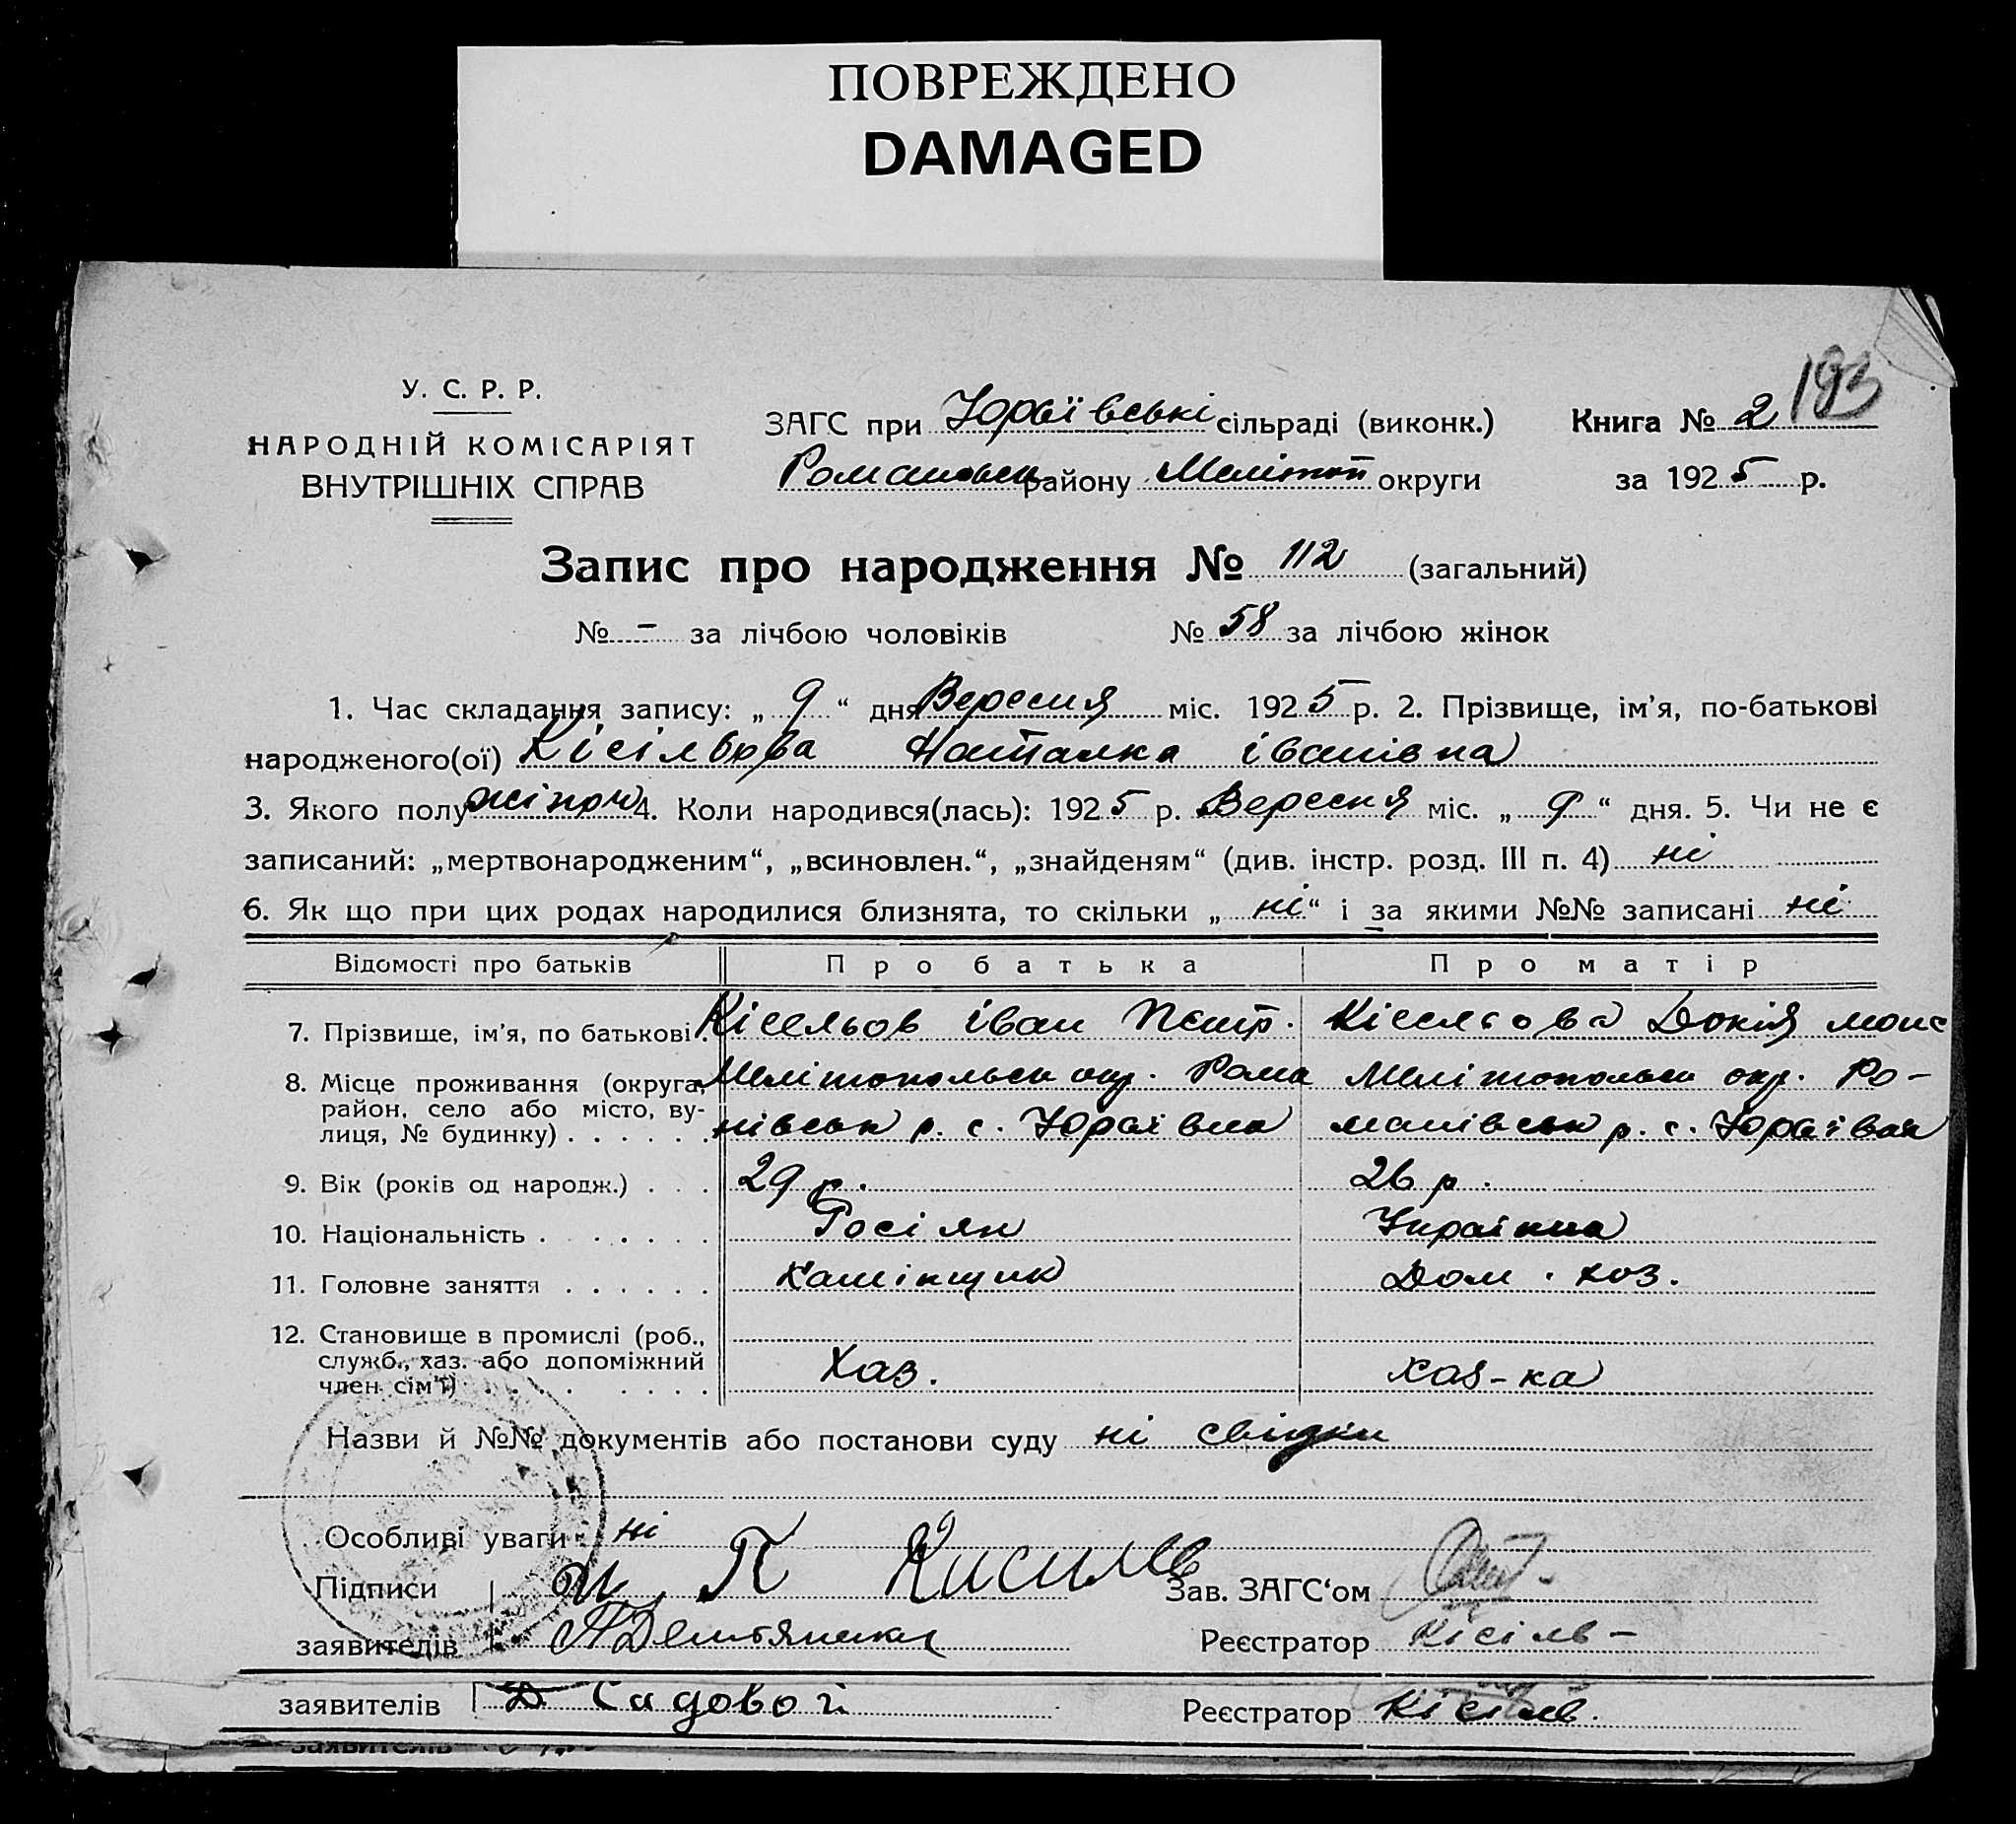 ПОВРЕЖДЕНО
DAMAGED
193
У. С. Р. Р.
НАРОДНІЙ КОМІСАРІЯТ
ВНУТРІШНІХ СПРАВ
ЗАГС при Юраївські сільраді (виконк.) Книга № 2
Романовськ району Мелітоп округи за 1925 р.
Запис про народження № 112 (загальний)
№ - за лічбою чоловіків № 58 за лічбою жінок
1. Час складання запису: „ 9 “ дня Вересня міс. 1925 р. 2. Прізвище, ім’я, по-батькові
народженого(ої) Кісільова Наталка іванівна
3. Якого полу жіноч 4. Коли народився(лась): 1925 р. Вересня міс. „ 9 “ дня. 5. Чи не є
записаний: „мертвонародженим“, „всиновлен.“, „знайденям“ (див. інстр. розд. III п. 4) ні
6. Як що при цих родах народилися близнята, то скільки „ ні “ і за якими №№ записані ні
Відомості про батьків Про батька Про матір
7. Прізвище, ім’я, по батькові. Кісельов іван Пєтр. Кісельова Докія
8. Місце проживання (округа, Мелітопольськ окр. Рома Мелітопольськ окр. Ро-
район, село або місто, ву-
лиця, № будинку) . . . . . . нівськ р. с. Юраївка манівськ р. с. Юраївка
9. Вік (років од народж.) . . . 29 р. 26 р.
10. Національність . . . . . . . Росіян Українка
11. Головне заняття . . . . . . Камінщик Дом. хоз.
12. Становище в промислі (роб.,
служб., хаз. або допоміжний
член сім’ї) . . . . . . . . Хаз. хаз-ка
Назви й №№ документів або постанови суду ні свідки
Особливі уваги ні
Підписи П Кисилев Зав. ЗАГС‘ом
заявителів Реєстратор Кісіль-
заявителів Д Садовой Реєстратор Кісіль.
заявителів